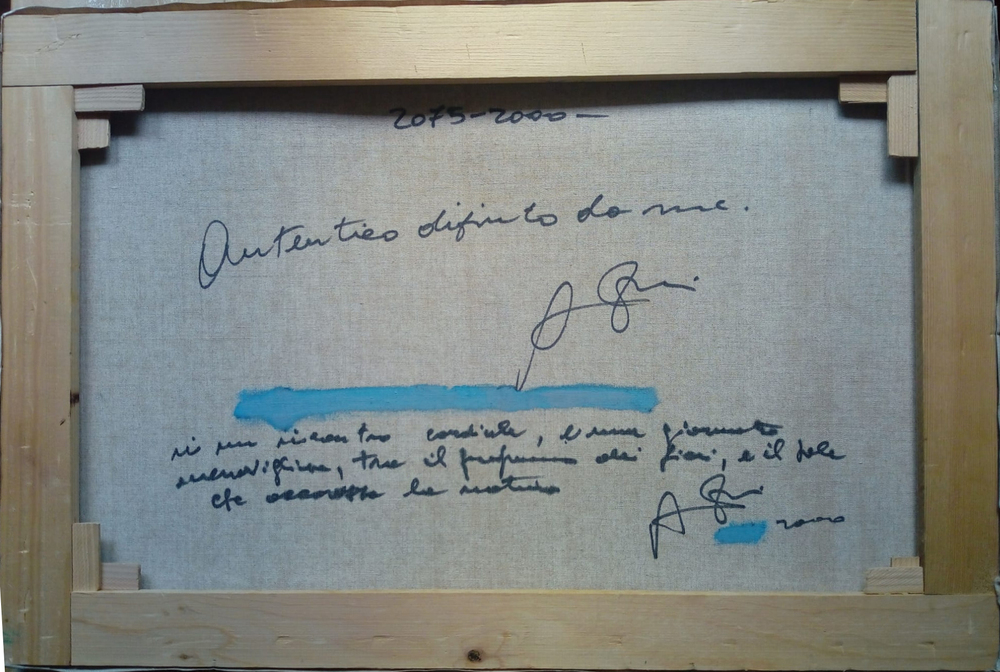 2075-2000-
Autentico dipinto da me.
di un incontro cordiale, e una giornata
meravigliosa, tra il profumo dei fiori, e il sole
che la natura
2000